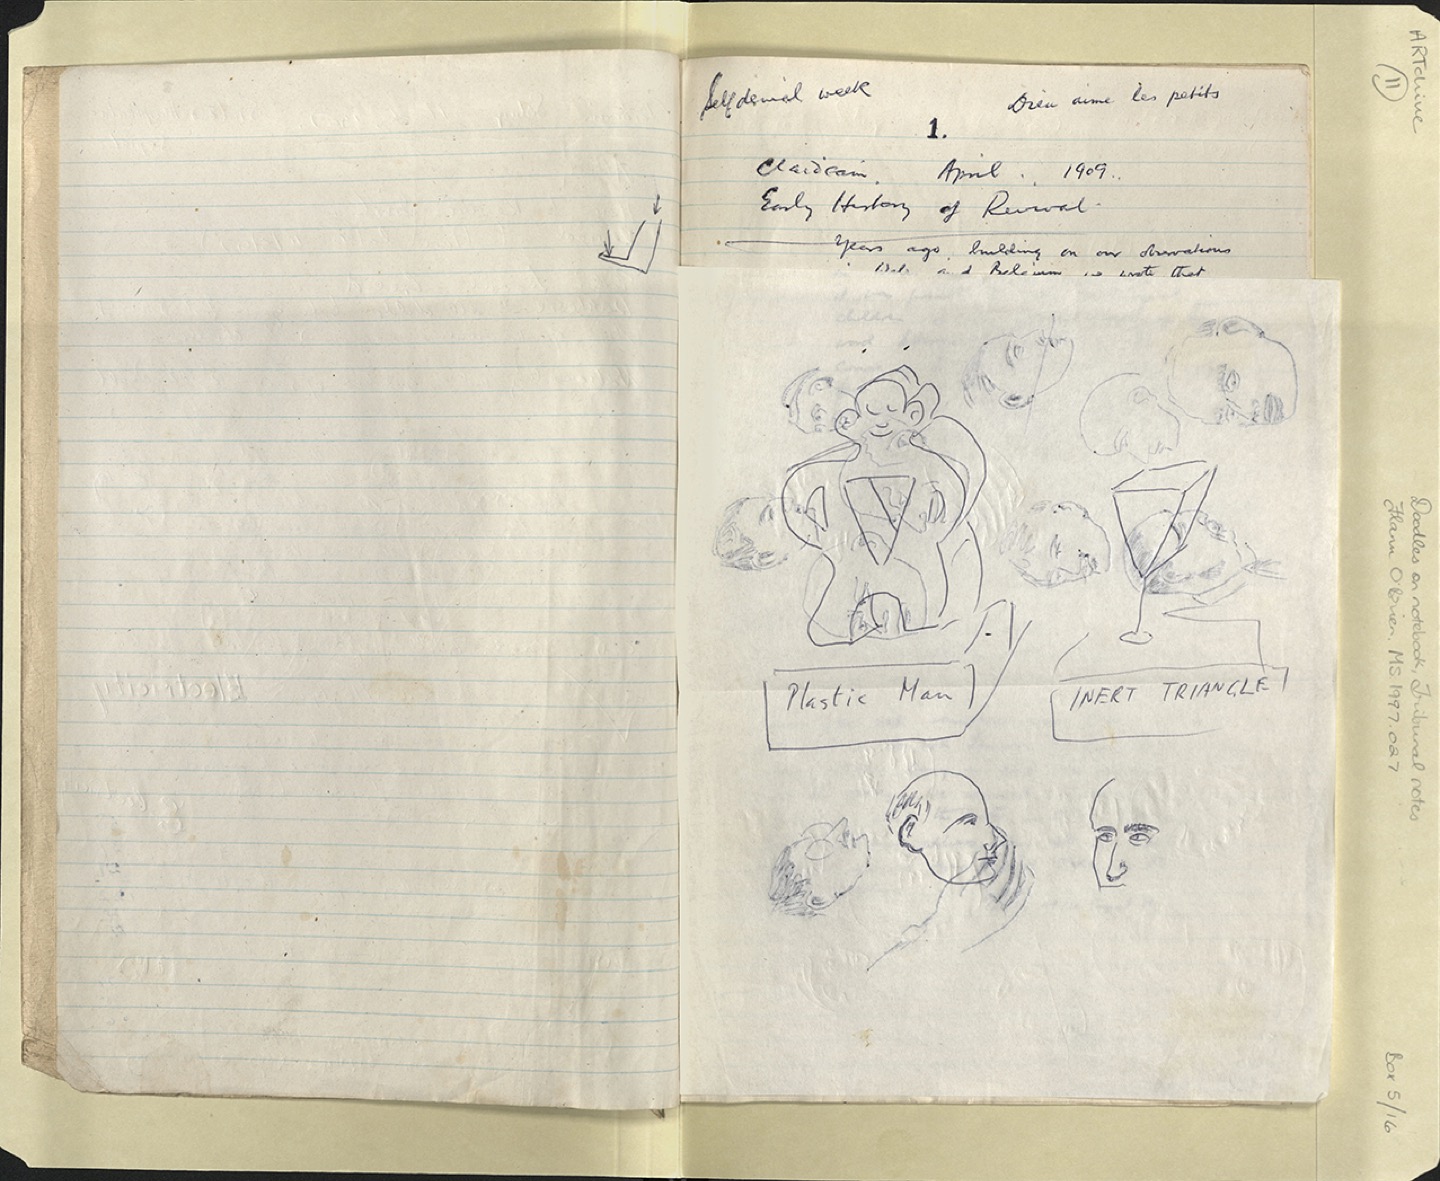 Self denial week
Dieu aime les petits
1.
April. 1909.
Early History of Revival.
years ago, building on our observations
and Belgium we wrote that
Plastic Man
INERT TRIANGLE
Electricity
ARTchive
11
Doodles on notebook, Tribunal notes
Flann O'Brien. MS.1997.027
Box 5/16